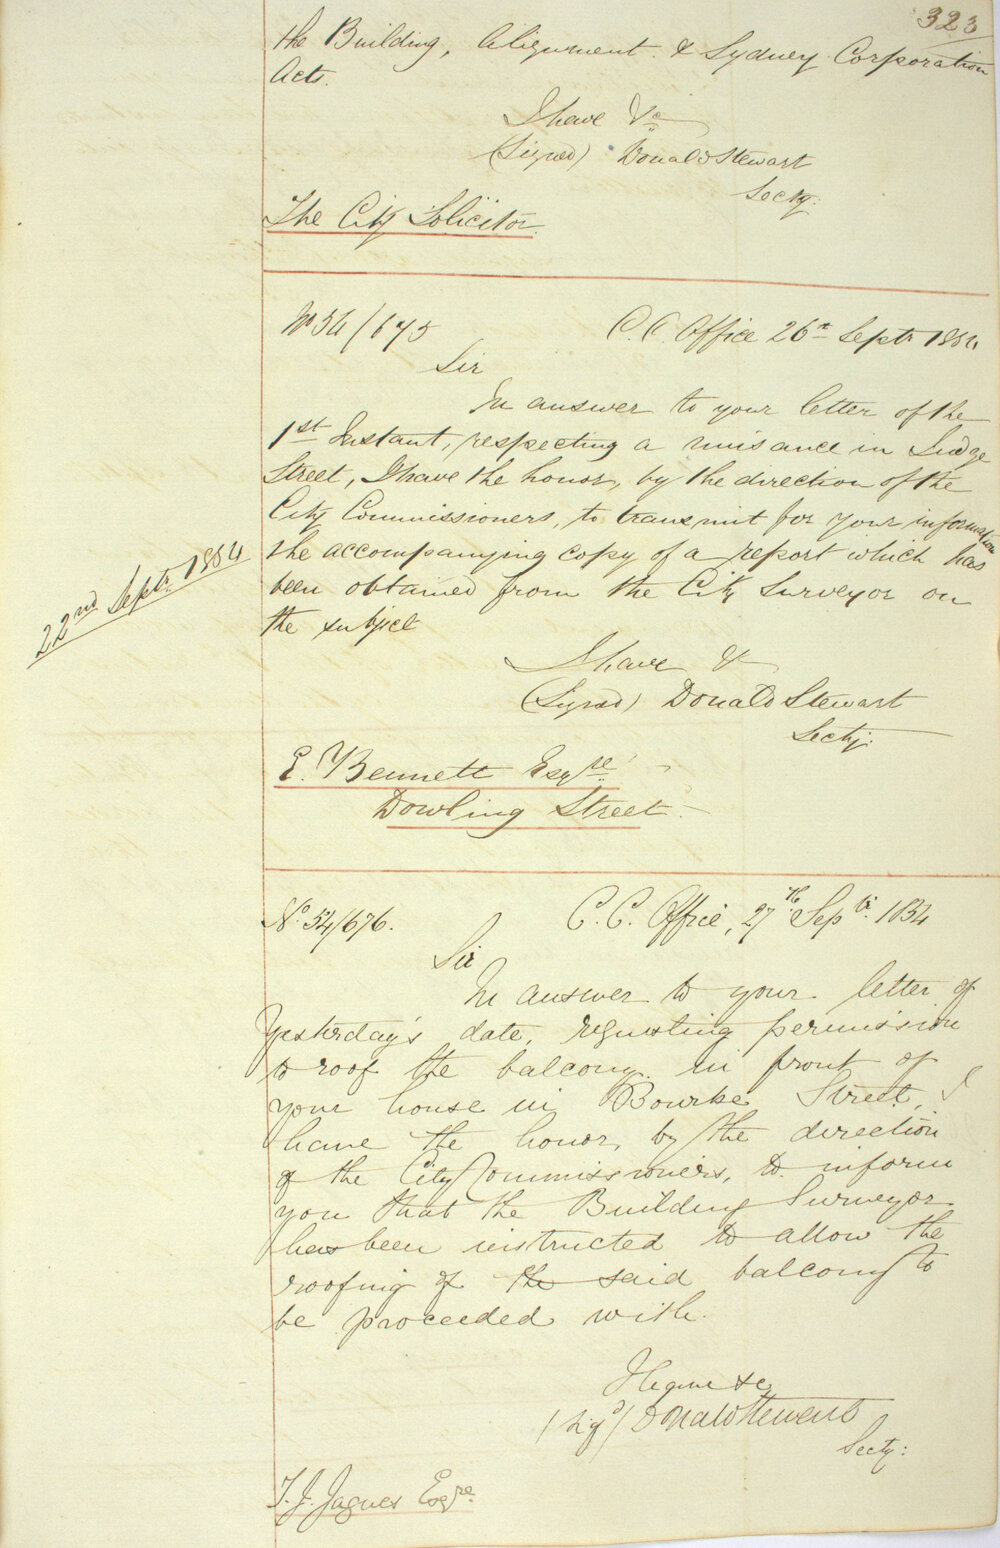 323
the Building, Alignment & Sydney Corporation
Acts.
I have &c
(Signed) Donald Stewart
Secty:
The City Solicitor.
No 54/675
C. C. Office 26th Septr 1854
Sir
In answer to your letter of the
1st Instant, respecting a nuisance in Judge
Street, I have the honor, by the direction of the
City Commissioners, to transmit for your information
the accompanying copy of a report which has
been obtained from the City Surveyor on
the subject
22nd Septr. 1854
I have &
(Signed) Donald Stewart
Secty:
E. Bennett Esqre
Dowling Street.
No. 54/676.
C. C. Office, 27th Septr. 1854
Sir
In answer to your letter of
Yesterday's date, requesting permission
to roof the balcony in front of
your house in Bourke Street, I
have the honor, by the direction
of the City Commissioners, to inform
you that the Building Surveyor
has been instructed to allow the
roofing of the said balcony to
be proceeded with.
I have &c
(Sigd) Donald Stewart
Secty:
T. J. Jaques Esqre.